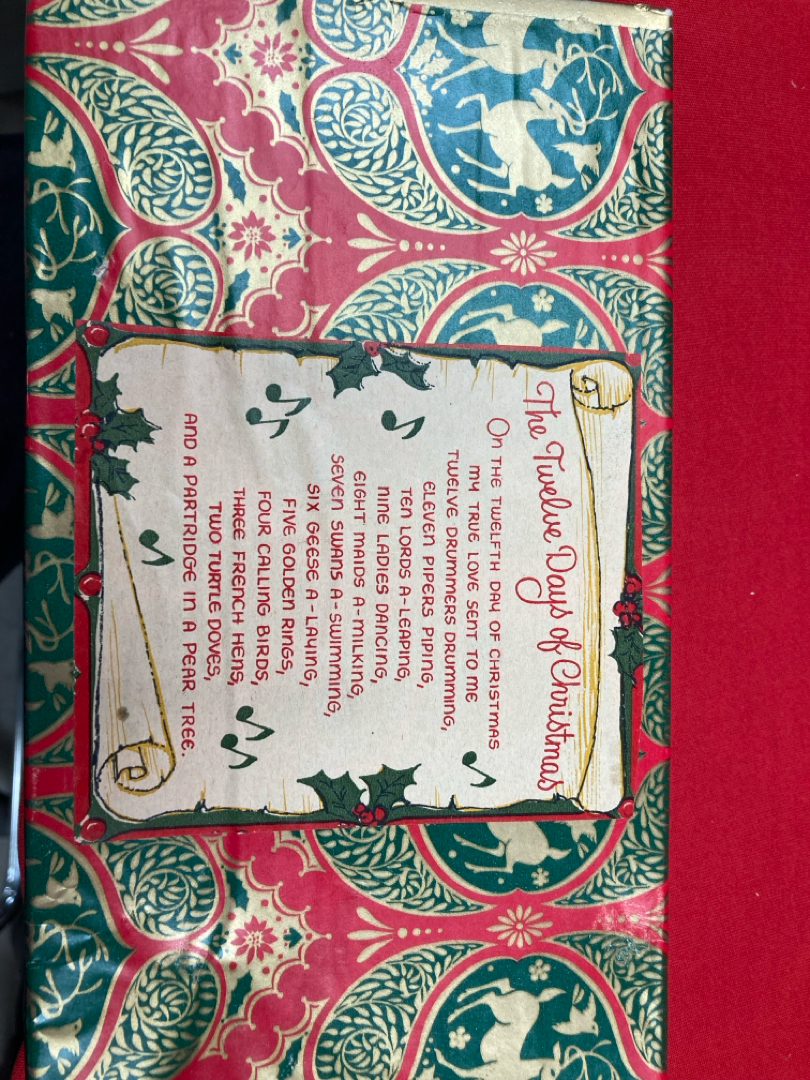 The Twelve Days of Christmas
ON THE TWELFTH DAY OF CHRISTMAS
MY TRUE LOVE SENT TO ME
TWELVE DRUMMERS DRUMMING,
ELEVEN PIPERS PIPING,
TEN LORDS A-LEAPING,
NINE LADIES DANCING,
EIGHT MAIDS A-MILKING,
SEVEN SWANS A-SWIMMING,
SIX GEESE A-LAYING,
FIVE GOLDEN RINGS,
FOUR CALLING BIRDS,
THREE FRENCH HENS,
TWO TURTLE DOVES,
AND A PARTRIDGE IN A PEAR TREE.